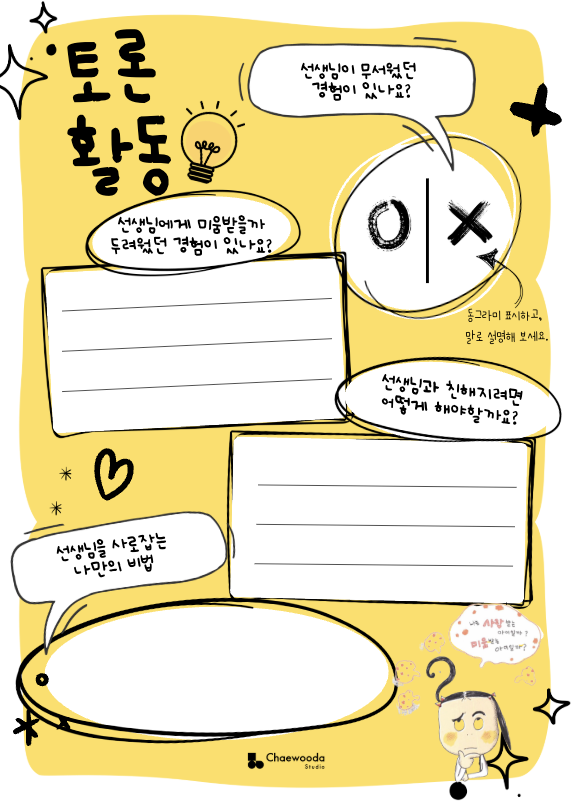 토론
활동
선생님이 무서웠던
경험이 있나요?
O X
동그라미 표시하고,
말로 설명해 보세요.
선생님에게 미움받을까
두려웠던 경험이 있나요?
선생님과 친해지려면
어떻게 해야할까요?
선생님을 사로잡는
나만의 비법
나는 사랑받는
아이일까?
미움받는
아이일까?
Chaewooda
Studio